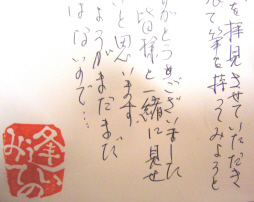 を拝見させていただき
て筆を持ってみようと
がとうございました
皆様と一緒に見せ
いと思います
ようがまだまだ
はないので…
逢